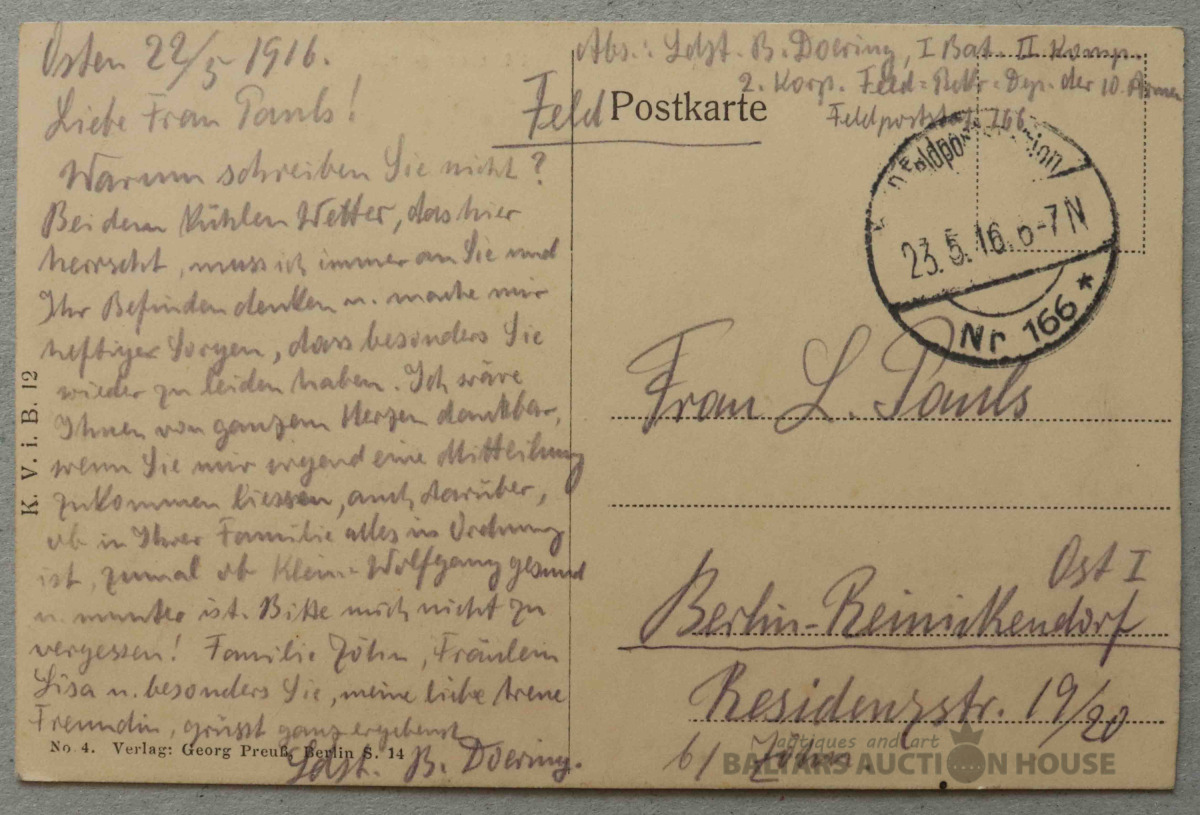 Osten 22/5 1916.
Liebe Frau Pauls!
Warum schreiben Sie nicht?
Bei dem Kühlen Wetter, das hier
herrscht, muss ich immer an Sie und
Ihr Befinden denken u. mache mir
heftiger Sorgen, dass besonders Sie
wieder zu leiden haben. Ich wäre
Ihnen von ganzem Herzen dankbar,
wenn Sie mir irgend eine Mitteilung
zukommen liessen, auch darüber,
ob in Ihrer Familie alles in Ordnung
ist, zumal ob Klein-Wolfgang gesund
u. munter ist. Bitte mich nicht zu
vergessen! Familie Zöhn, Fräulein
Lisa u. besonders Sie, meine liebe treue
Freundin, grüsst ganz ergebenst
Ldst. B. Doering.
No 4. Verlag: Georg Preuß, Berlin S. 14
K. V. i. B. 12
Abs.: Ldst. B. Doering, I Bat. II Komp.
2. Korp. Feld=Rekr.=Dep. der 10. Armee
Feldpoststat. 166
Feld Postkarte
Feldpoststation
23.5.16. 6-7N
Nr 166 *
Frau L. Pauls
Ost I
Berlin-Reinickendorf
Residenzstr. 19/20
b/ Zöhn.
antiques and art
BALTARS AUCTION HOUSE